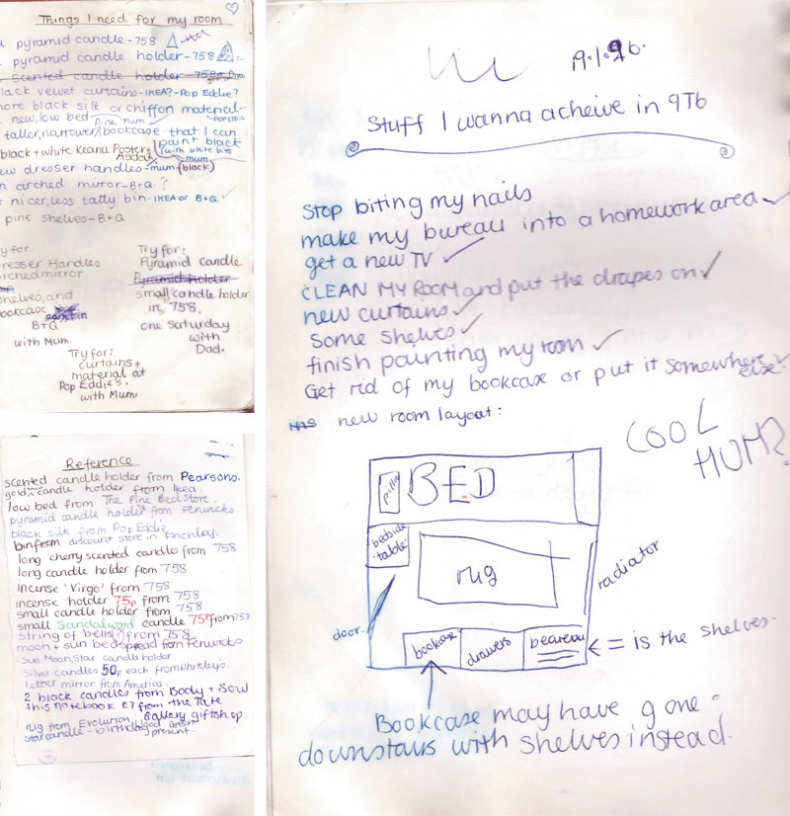 Things I need for my room
pyramid candle - 758
pyramid candle holder - 758
scented candle holder - 758
lack velvet curtains - IKEA? - Pop Eddie?
ore black silk or chiffon material -
new, low bed - Pine Mum
taller, narrower bookcase that I can
paint black
(with white bits
mum
black + white Keanu Poster -
Asda
ew dresser handles - mum (black)
n arched mirror - B+Q ?
nicer, less tatty bin - IKEA or B+Q.
pine shelves - B+Q
y for:
resser Handles
rched mirror
shelves, and
ookcase
B+Q
with Mum
Try for:
Pyramid candle
Pyramid holder
small candle holder
in 758,
one Saturday
with
Dad.
Try for:
curtains +
material at
Pop Eddie's.
with Mum.
Reference
scented candle holder from Pearsons.
gold candle holder from Ikea
low bed from The Pine Bed Store.
pyramid candle holder from Fenwicks
black silk from Pop Eddie
bin from discount store in Finchley.
long cherry scented candles from 758
long candle holder from 758
incense 'Virgo' from 758
incense holder 75p from 758
small candle holder from 758
small Sandalwood candle 75p from 758
string of bells from 758
moon + sun bedspread from Fenwicks
Sun, Moon, Star candle holder
silver candles 50p each from Whiteley's
letter mirror from America.
2 black candles from Body + Soul
this notebook £7 from the Tate
Gallery giftshop.
rug from Evolution
star candle - birthday present.
19.1.96.
Stuff I wanna acheive in 9T6
Stop biting my nails
make my bureau into a homework area
get a new TV
CLEAN MY ROOM and put the drapes on
new curtains
Some shelves
finish painting my room
Get rid of my bookcase or put it somewhere
else
new room layout:
COOL
HUH?
pillow
BED
bedside
table
rug
radiator
door
bookcase
drawers
beareau
= is the shelves.
Bookcase may have gone
downstairs with shelves instead.